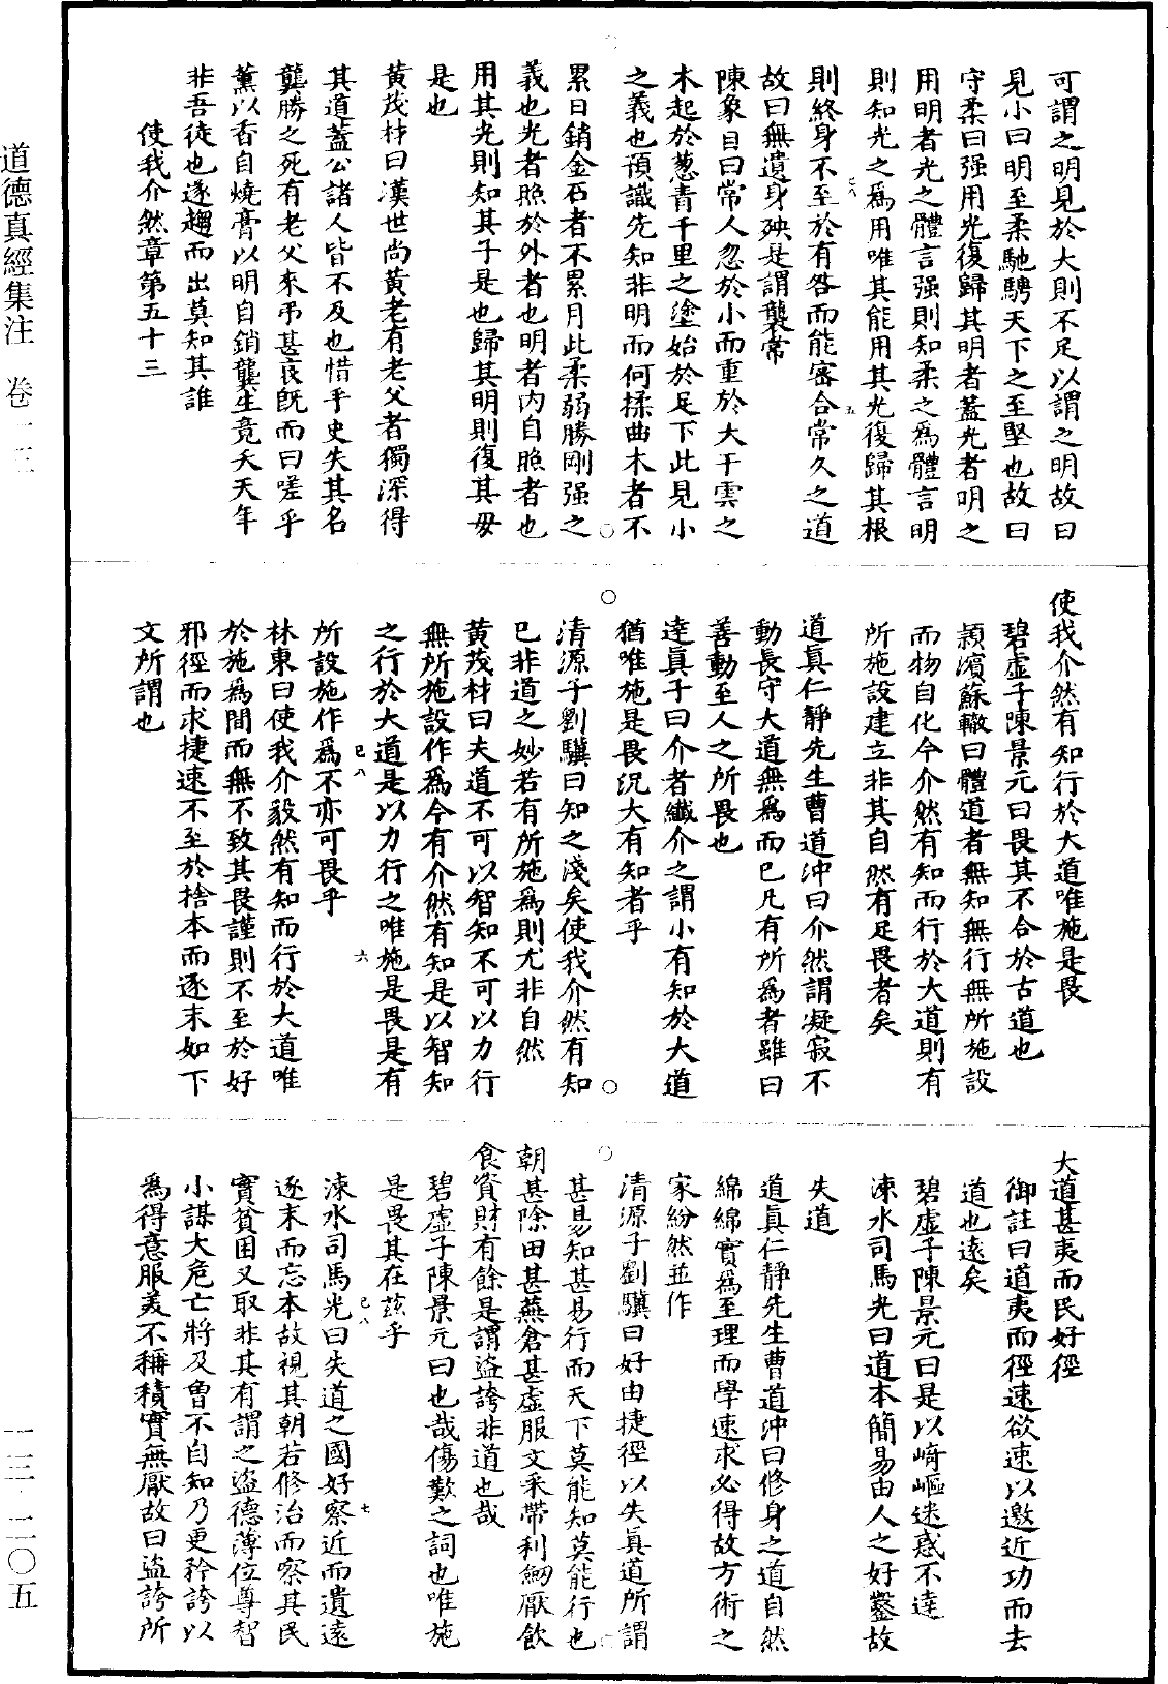 道德真經集注　卷一三
一三·二〇五
可謂之明見於大則不足以謂之明故曰
見小曰明至柔馳騁天下之至堅也故曰
守柔曰强用光復歸其明者蓋光者明之
用明者光之體言强則知柔之爲體言明
則知光之爲用唯其能用其光復歸其根
則終身不至於有咎而能密合常久之道
故曰無遺身殃是謂襲常
陳象自曰常人忽於小而重於大干雲之
木起於葱青千里之塗始於足下此見小
之義也預識先知非明而何揉曲木者不
累日銷金石者不累月此柔弱勝剛强之
義也光者照於外者也明者内自照者也
用其光則知其子是也歸其明則復其母
是也
黄茂材曰漢世尚黄老有老父者獨深得
其道蓋公諸人皆不及也惜乎史失其名
龔勝之死有老父來弔甚哀旣而曰嗟乎
薰以香自燒膏以明自銷龔生竟夭天年
非吾徒也遂趨而出莫知其誰
使我介然章第五十三
使我介然有知行於大道唯施是畏
碧虛子陳景元曰畏其不合於古道也
潁濱蘇轍曰體道者無知無行無所施設
而物自化今介然有知而行於大道則有
所施設建立非其自然有足畏者矣
道真仁靜先生曹道沖曰介然謂凝寂不
動長守大道無爲而已凡有所爲者雖曰
善動至人之所畏也
達真子曰介者纖介之謂小有知於大道
猶唯施是畏況大有知者乎
清源子劉驥曰知之淺矣使我介然有知
已非道之妙若有所施爲則尤非自然
黄茂材曰夫道不可以智知不可以力行
無所施設作爲今有介然有知是以智知
之行於大道是以力行之唯施是畏是有
所設施作爲不亦可畏乎
林東曰使我介毅然有知而行於大道唯
於施爲間而無不致其畏謹則不至於好
邪徑而求捷速不至於捨本而逐末如下
文所謂也
大道甚夷而民好徑
御註曰道夷而徑速欲速以邀近功而去
道也遠矣
碧虛子陳景元曰是以崎嶇迷惑不達
涑水司馬光曰道本簡易由人之好鑿故
失道
道真仁靜先生曹道沖曰修身之道自然
綿綿實爲至理而學速求必得故方術之
家紛然並作
清源子劉驥曰好由捷徑以失真道所謂
甚易知甚易行而天下莫能知莫能行也
朝甚除田甚蕪倉甚虛服文采帶利劒厭飲
食資財有餘是謂盜誇非道也哉
碧虛子陳景元曰也哉傷歎之詞也唯施
是畏其在茲乎
涑水司馬光曰失道之國好察近而遺遠
逐末而忘本故視其朝若修治而察其民
實貧困又取非其有謂之盜德薄位尊智
小謀大危亡將及曾不自知乃更矜誇以
爲得意服美不稱積實無厭故曰盜誇所